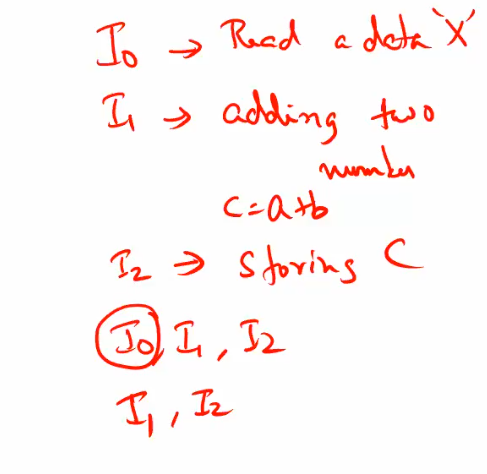 I0 → Read a data 'X'
I1 → adding two
number
C=a+b
I2 → Storing C
I0, I1, I2
I1, I2